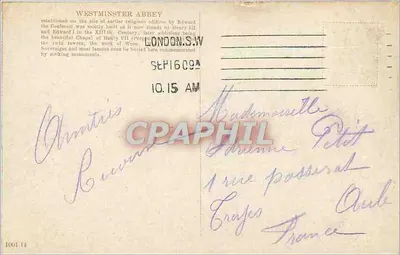 WESTMINSTER ABBEY
established on the site of earlier religious edifices by Edward
the Confessor was mainly built as it now stands by Henry III
and Edward I in the XIIIth Century, later additions being
the beautiful Chapel of Henry VII
the twin towers, the work of Wren.
and most famous men
by striking monuments.
LONDON. S.W
SEP 16 09
10.15 AM
CPAPHIL
Amitiés
Mademoiselle
Adrienne Petit
1 rue passerat
Troyes Aube
France